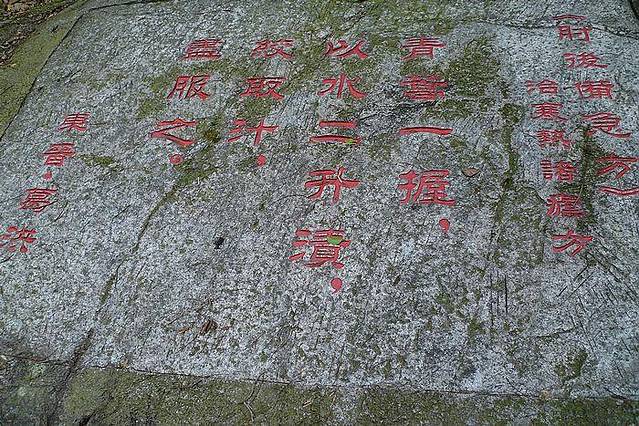 (肘後備急方)
治寒熱諸瘧方
青蒿一握，
以水二升漬，
絞取汁，
盡服之，
東晉·葛洪